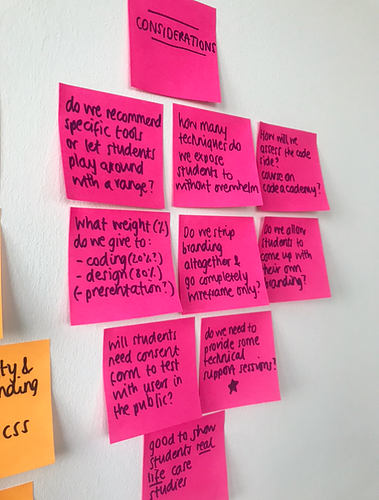 CONSIDERATIONS
do we recommend
specific tools
or let students
play around
with a range?
how many
techniques do
we expose
students to
without overwhelm
How will we
assess the code
side?
course on
codeacademy?
What weight (%)
do we give to:
- coding (20%?)
- design (80%)
(- presentation?)
Do we strip
branding
altogether &
go completely
wireframe only?
Do we allow
students to
come up with
their own
branding?
will students
need consent
form to test
with users in
the public?
do we need to
provide some
technical
support sessions?
good to show
students real
life case
studies
ty &
nding
CSS